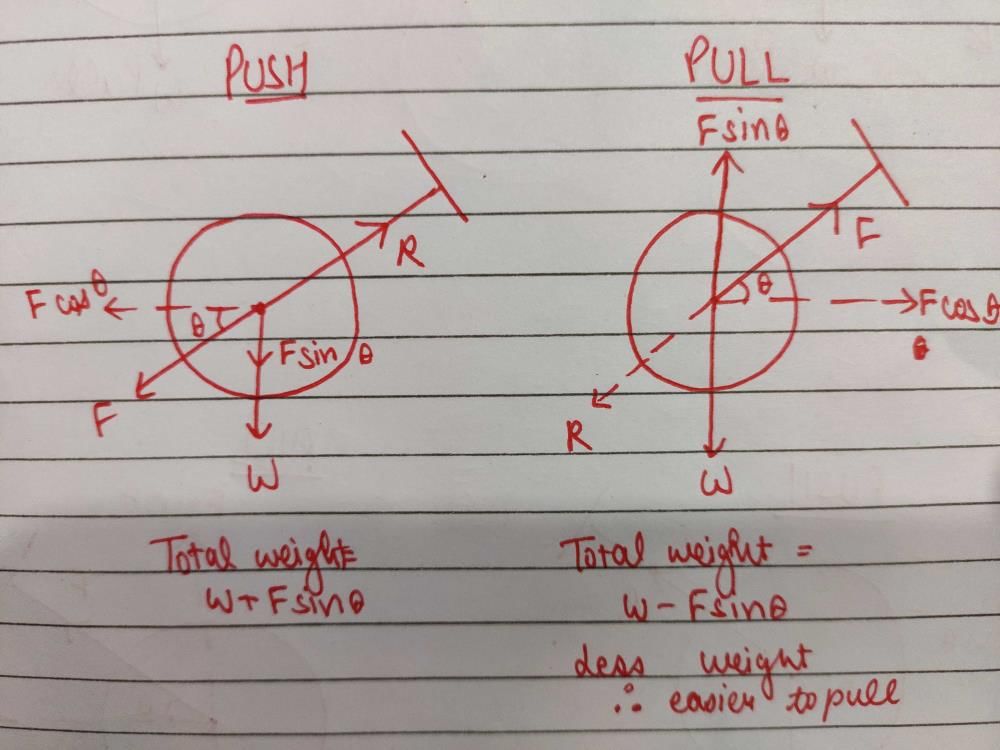 PUSH
R
F cosθ
θ
F sin θ
F
W
Total weight =
W + F sinθ
PULL
F sinθ
F
θ
F cosθ
θ
R
W
Total weight =
W - F sinθ
Less weight
∴ easier to pull